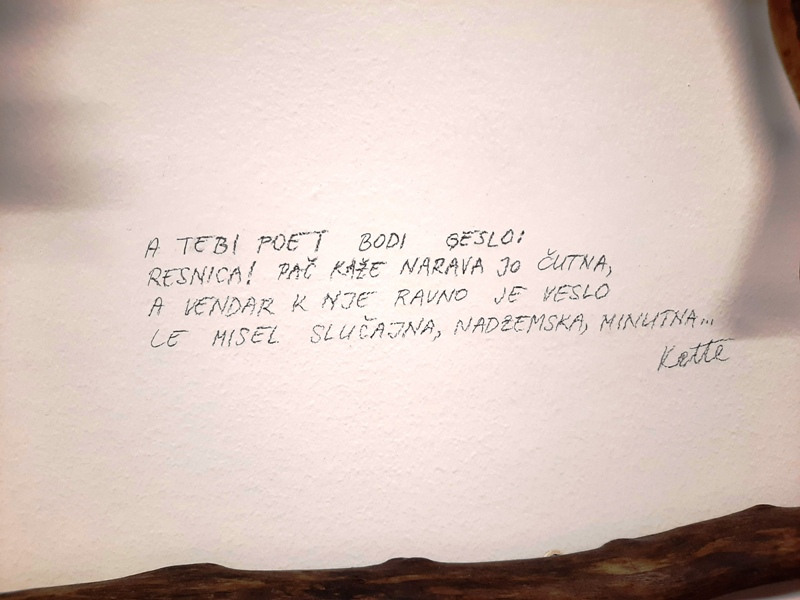 A TEBI POET BODI GESLO:
RESNICA! PAČ KAŽE NARAVA JO ČUTNA,
A VENDAR K NJE RAVNO JE VESLO
LE MISEL SLUČAJNA, NADZEMSKA, MINUTNA...
Kette